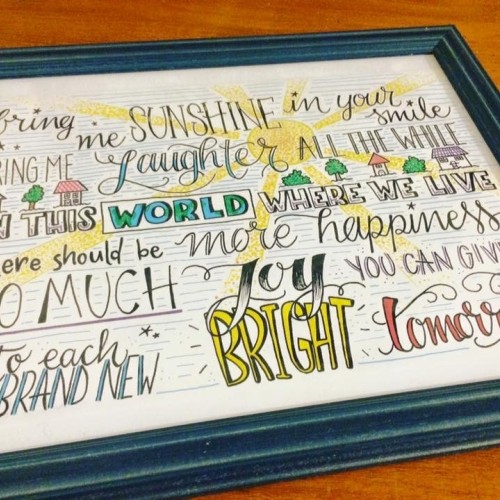 bring me SUNSHINE in your smile
RING ME Laughter ALL THE WHILE
THIS WORLD WHERE WE LIVE
ere should be more happiness
O MUCH Joy YOU CAN GIV
to each BRAND NEW BRIGHT tomorr